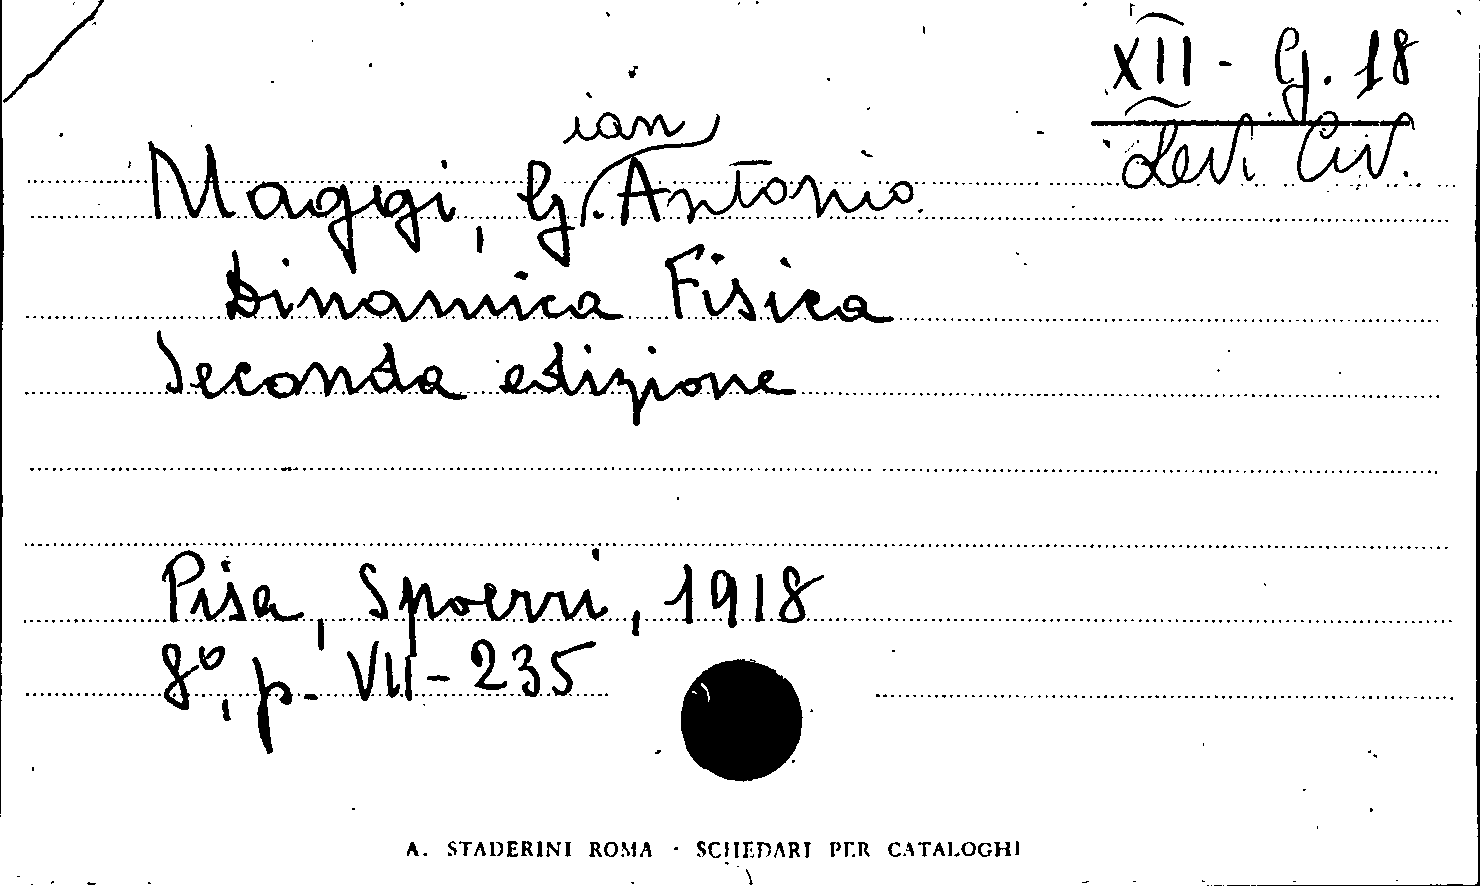 XII - G. 18
Levi Civ.
ian
Maggi, G. Antonio
Dinamica Fisica
Seconda edizione
Pisa, Spoerri, 1918
8º, p. VII - 235
A. STADERINI ROMA · SCHEDARI PER CATALOGHI